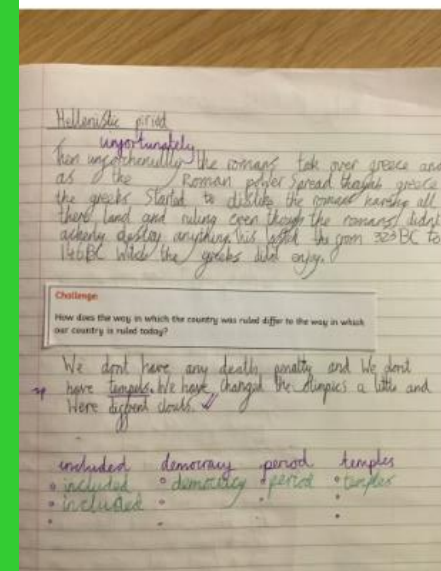 Hellenistic piriod
unfortunately
Then unforchenitly the romans tak over greece and
as the Roman power spread though greece
the greeks Started to dislike the romans having all
there land and ruling even though the romans didnt
ackerly destroy anything. This lasted the from 323 BC to
146BC witch the greeks didn't enjoy.
Challenge
How does the way in which the country was ruled differ to the way in which
our country is ruled today?
We dont have any death penalty and We dont
sp have tempels. We have changed the olimpics a little and
Were different clouths.
included democracy period temples
included democracy period temples
included